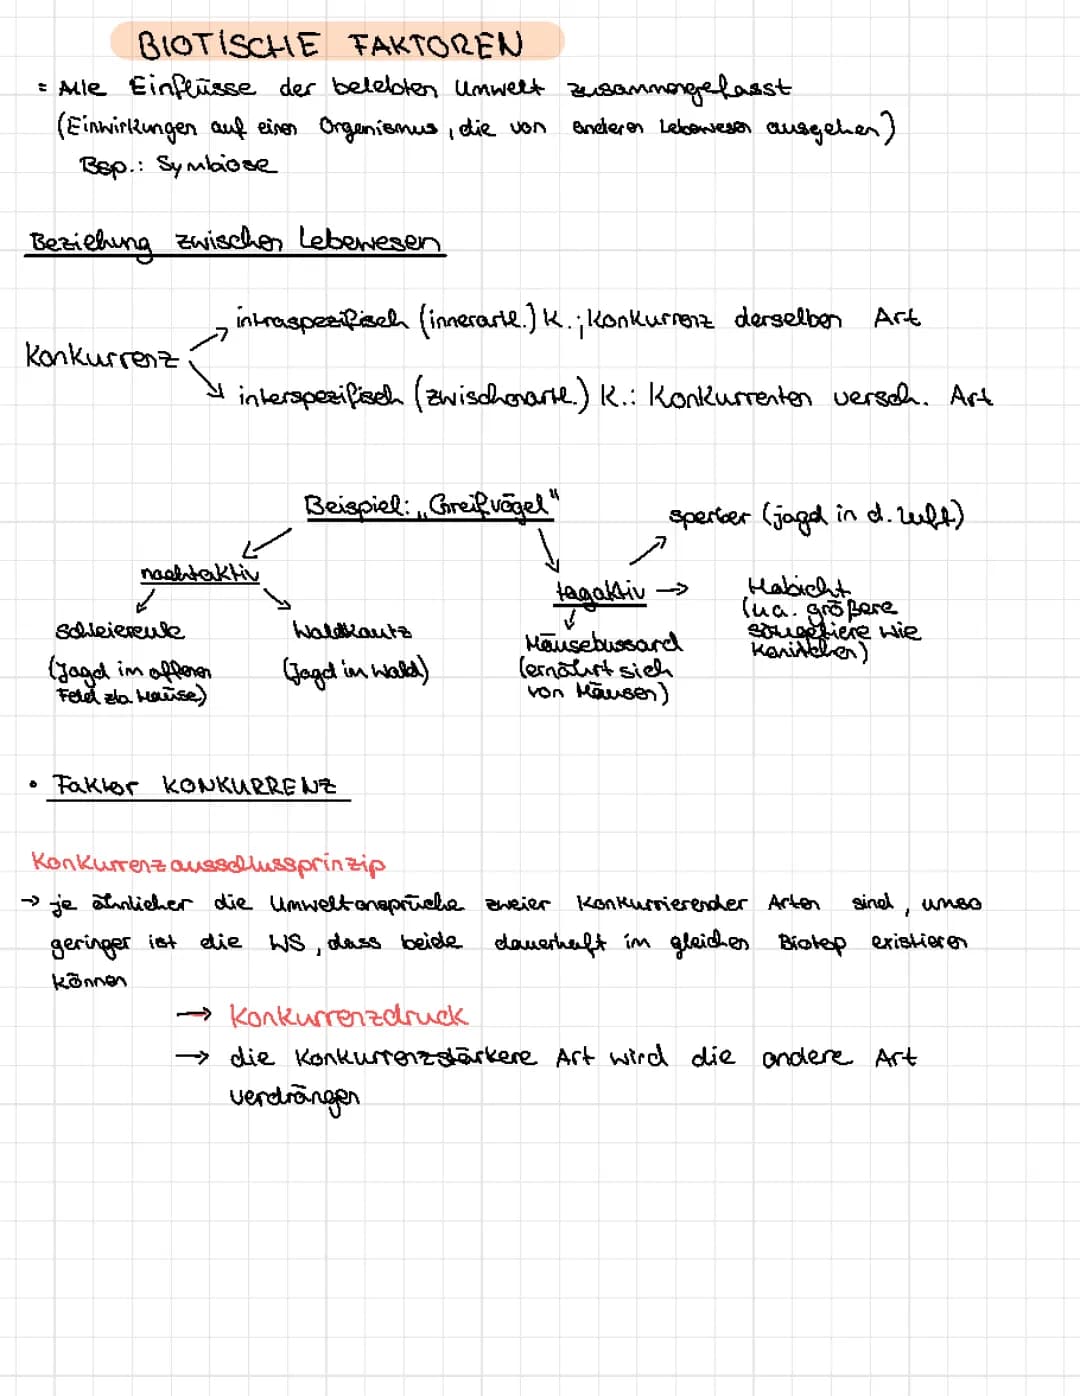 BIOTISCHE FAKTOREN
= Alle Einflüsse der belebten Umwelt zusammengefasst
(Einwirkungen auf einen Organismus, die von anderen Lebewesen ausgehen)
Bsp.: Symbiose
Beziehung zwischen Lebewesen
intraspezifisch (innerartl.) K.; Konkurrenz derselben Art
Konkurrenz
interspezifisch (zwischenartl.) K.: Konkurrenten versch. Art
Beispiel: „Greifvögel"
sperber (jagd in d. Luft)
nachtaktiv
tagaktiv →
Habicht
(u.a. größere
Säugetiere wie
Kaninchen)
Schleiereule
(Jagd im offenen
Feld Mäuse)
Waldkautz
(Jagd im Wald)
Mäusebussard
(ernährt sich
von Mäusen)
• Faktor KONKURRENZ
Konkurrenzausschlussprinzip
→ je ähnlicher die Umweltansprüche zweier Konkurrierender Arten sind, umso
geringer ist die WS, dass beide dauerhaft im gleichen Biotop existieren
können
→ Konkurrenzdruck
→ die Konkurrenzstärkere Art wird die andere Art
verdrängen